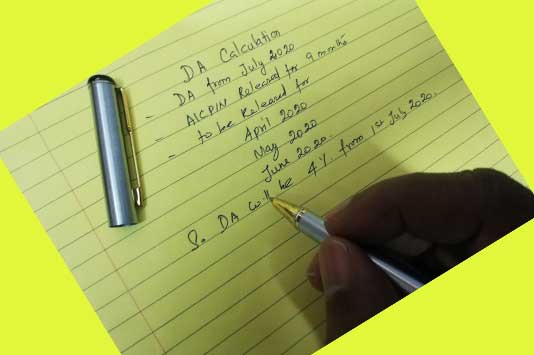 DA Calculation
- DA from July 2020
- AICPIN Released for 9 months
- to be Released for
April 2020
May 2020
June 2020.
So DA will be 4%. from 1st July 2020.